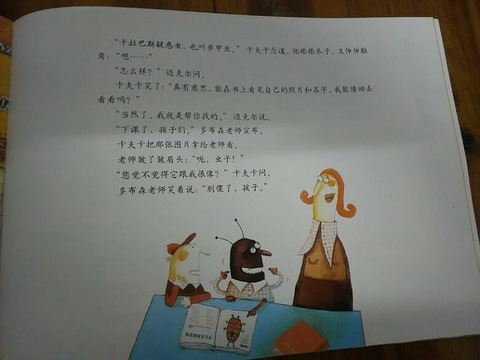 “卡拉巴斯疑惑虫，也叫步甲虫。”卡夫卡念道。他搓搓爪子，又伸伸触
角：“嗯……”
“怎么样？”迈克尔问。
卡夫卡笑了：“真有意思，能在书上看见自己的照片和名字。我能借回去
看看吗？”
“当然了，我就是帮你找的。”迈克尔说。
“下课了，孩子们。”多布森老师宣布。
卡夫卡把那张图片拿给老师看。
老师皱了皱眉头：“呃，虫子！”
“您觉不觉得它跟我很像？”卡夫卡问。
多布森老师笑着说：“别傻了，孩子。”